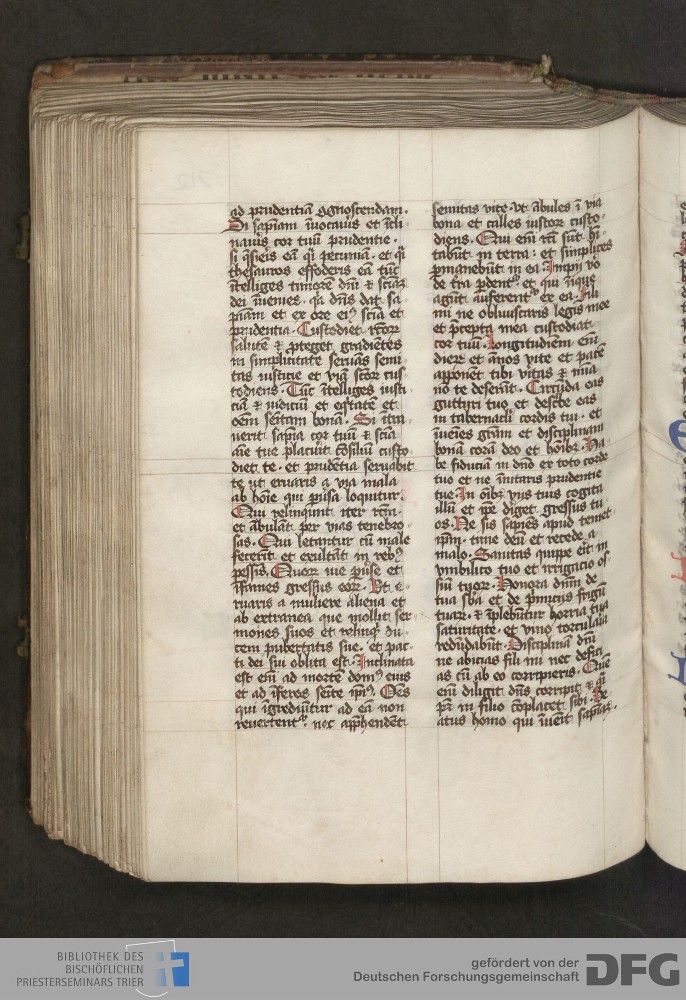 ad prudentiā ɔgnoscendam.
Si sapīam īuocau̾is et īcli
nau̾is cor tuū prudentie.
si q̄sieis eā q̄i pecuniā. et q̄i
thesauros effoderis eā tūc
ītelliges timorē dnī ⁊ scīaꝫ
dei īuenies. q̄a dn̄s dat sa
piam et ex ore eiꝰ scīa et
prudentia. Custodiet rc̄oꝝ
salutē ⁊ ꝓteget gradiētes
in simplicitate seruās semi
tas iusticie et viā sc̄oꝝ cus
todiens. Tūc ītelliges iusti
ciā ⁊ iudiciū et eq̄tatē et
oēm semitam bonā. Si ītra
uerit sapīa cor tuū ⁊ scīa
aīe tue placuit ɔ̄siliū custo
diet te. et prudētia seruabit
te ut eruaris a via mala
ab hoīe qui ꝑu̾sa loquitur.
Qui relinquūt iter rc̄m.
et ābulāt per vias tenebro
sas. Qui letantur cū male
fecerīt et exultāt in rebꝰ
pessis. Quoꝝ vie ꝑu̾se et
īfames gressus eoꝝ. Ut e
ruaris a muliere aliena et
ab extranea que mollit ser
mones suos et relinq̄t du
cem pubertatis sue. et pac
ti dei sui oblita est. Inclinata
est eīm ad mortē domꝰ eius
et ad īferos semite ipiꝰ. Oēs
qui īgrediūtur ad eā non
reuertent᷑. nec appͥhendēt
semitas vite. Vt ābules ī via
bona et calles iustoꝝ custo
diens. Qui eīm rc̄i sūt hi
tabūt in terra: et simplices
ꝑmanebūt in ea. Impii vō
de tra ꝑdent᷑. et qui īique
agūt auferent᷑ ex ea. Fili
mi ne obliuiscaris legis mee
et p̄cepta mea custodiat
cor tuū. Longitudinem eīm
dieꝝ et ānos vite et pacē
apponēt tibi vitas ⁊ mīa
nō te deserāt. Circūda eas
gutturi tuo et descͥbe eas
in tabernacl̄i cordis tui. et
īueīes grām et disciplinam
bonā corā deo et hoībꝫ. Ha
be fiduciā in dn̄o ex toto corde
tuo et ne īnitaris prudentie
tue. In oībꝫ viis tuis cogita
illū et ip̄e diget gressus tu
os. Ne sis sapīes apud temet
ip̄m. time deū et recede a
malo. Sanitas quipe erit in
vmbilico tuo et irrigacio os
siū tuoꝝ. Honora dnīm de
tua sb̄a et de pͥmicus frigū
tuaꝝ. ⁊ īplebūtur horria tua
saturitate. et vino torcularia
redūdabūt. Disciplinā dnī
ne abicias fili mi nec defici
as cū ab eo corriperis. Quē
eīm diligit dn̄s corripit ⁊ q̄i
pr̄ in filio ɔ̄placet sibi. Be
atus homo qui īuēit sapīaꝫ.
BIBLIOTHEK DES
BISCHÖFLICHEN
PRIESTERSEMINARS TRIER
gefördert von der
Deutschen Forschungsgemeinschaft
DFG